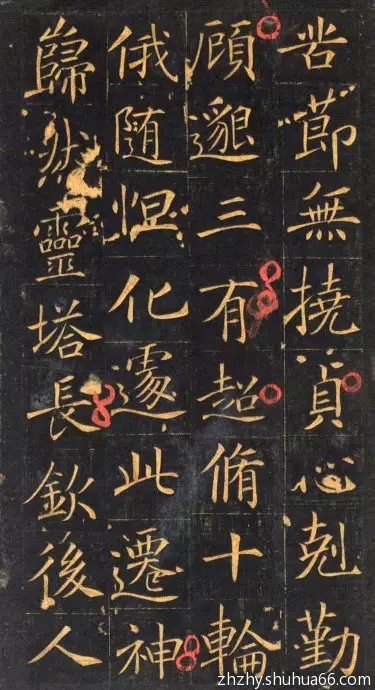 苦莭無撓貞心剋勤
顧邈三有超脩十輪
俄随怛化遽此遷神
巋然靈塔長欽後人
zhzhy.shuhua66.com